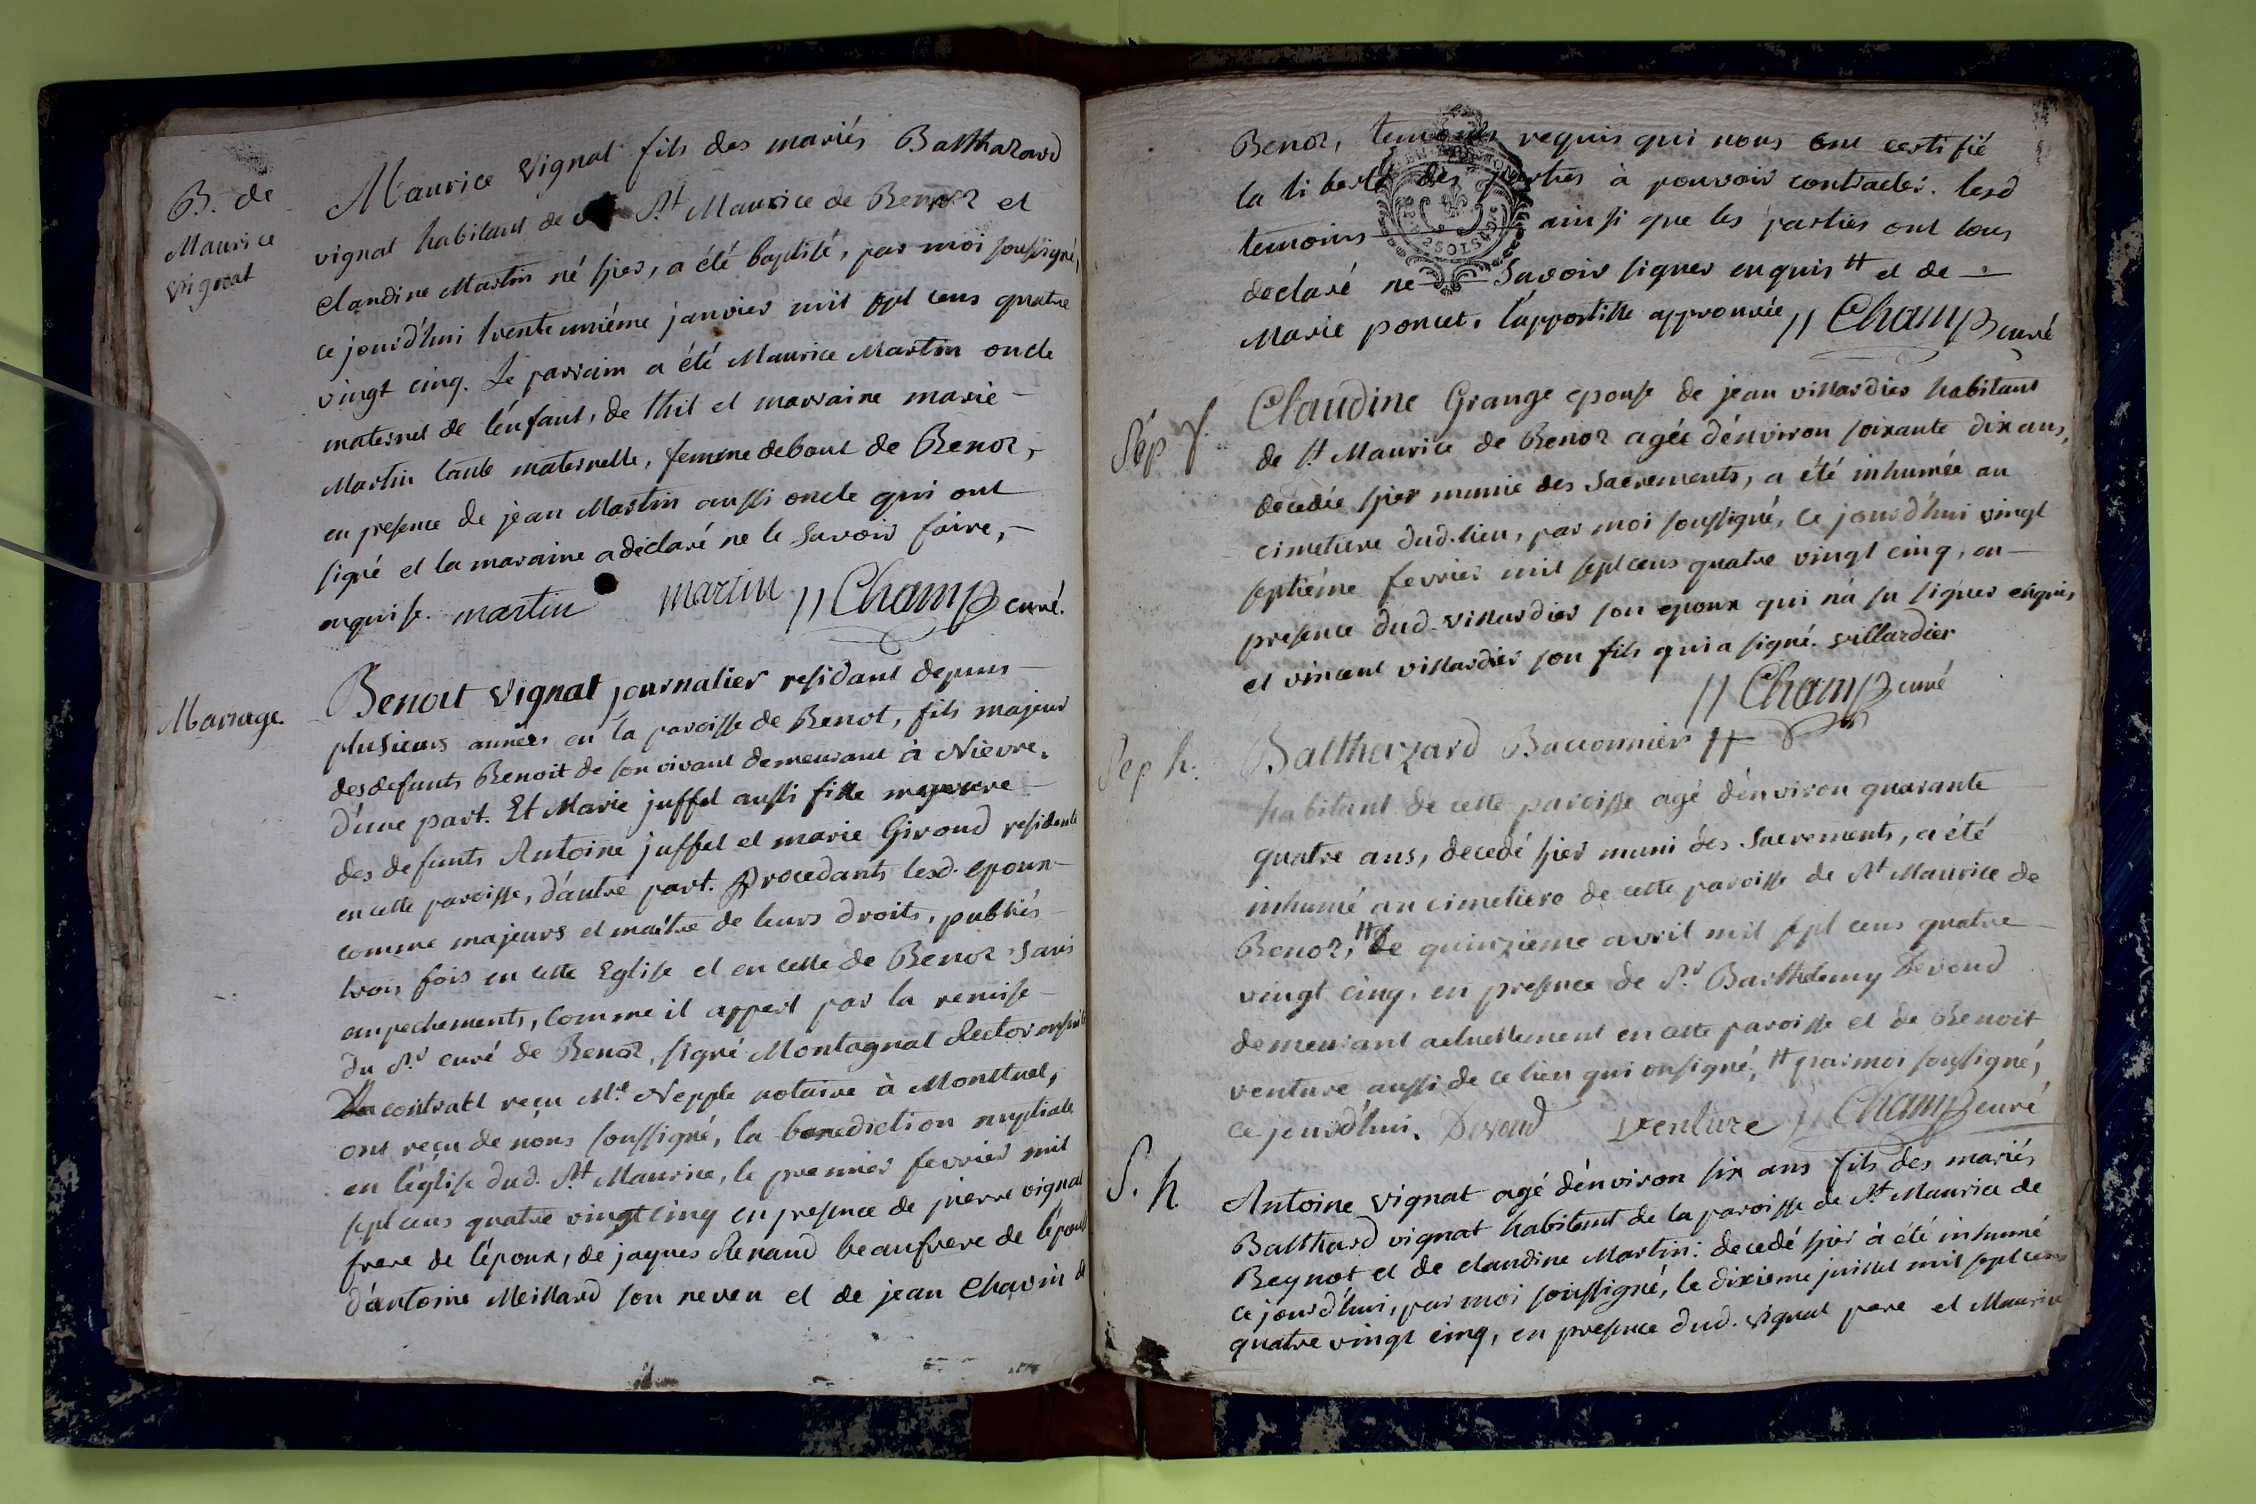 B. de
Maurice
vignat
Maurice vignat fils des mariés Balthazard
vignat habitant de St Maurice de Benoz et
claudine Martin né hier, a été baptisé, par moi soussigné,
ce jourd'hui trente unième janvier mil sept cens quatre
vingt cinq. Le parrain a été Maurice Martin oncle
maternel de l'enfant, de thil et marraine marie
Martin tante maternelle, femme debout de Benoz,
en presence de jean Martin aussi oncle qui ont
signé et la maraine a déclaré ne le savoir faire,
enquise. martin martin // Champ curé.
Mariage
Benoit vignat journalier residant depuis
plusieurs années en la paroisse de Benot, fils majeur
des defunts Benoit de son vivant demeurant à Nièvre,
d'une part. Et Marie juffet aussi fille majeure
des defunts Antoine juffet et marie Giroud residente
en cette paroisse, d'autre part. Procedants lesd. epoux
comme majeurs et maître de leurs droits, publiés
trois fois en cette Eglise et en celle de Benoz sans
empechements, comme il appert par la remise
du Sr curé de Benoz, signé Montagnat Rector ensuite
contract reçu Me Nepple notaire à Montluel,
ont reçu de nous soussigné, la benediction nuptiale
en l'église dud. St Maurice, le premier fevrier mil
sept cens quatre vingt cinq en presence de pierre vignat
frere de l'époux, de jaques Renaud beaufrere de l'époux
d'antoine Meillard son neveu et de jean Chavin de
Benoz, temoins requis qui nous ont certifié
la liberté des parties à pouvoir contracter. lesd
temoins ainsi que les parties ont tous
declaré ne savoir signer enquis # et de
Marie poncet, l'appostille approuvée // Champ curé
Sép f.
Claudine Grange epouse de jean villardier habitant
de St Maurice de Benoz agée d'environ soixante dix ans,
decedée hier munie des Sacrements, a été inhumée au
cimetiere dud. lieu, par moi soussigné, ce jourd'hui vingt
septième fevrier mil sept cens quatre vingt cinq, en
presence dud. villardier son epoux qui n'a su signer enquis
et vincent villardier son fils qui a signé. villardier
// Champ curé
Sép h.
Balthazard Bacconnier #
habitant de cette paroisse agé d'environ quarante
quatre ans, decedé hier muni des Sacrements, a été
inhumé au cimetiere de cette paroisse de St Maurice de
Benoz, # le quinzieme avril mil sept cens quatre
vingt cinq, en presence de Sr Barthelemy Devoud
demeurant actuellement en cette paroisse et de Benoit
venture aussi de ce lieu qui ont signé, # par moi soussigné,
ce jourd'hui. Devoud venture // Champ curé
S. h
Antoine vignat agé d'environ six ans fils des mariés
Balthard vignat habitant de la paroisse de St Maurice de
Beynot et de claudine Martin. decedé hier à été inhumé
ce jourd'hui, par moi soussigné, le dixieme juillet mil sept cens
quatre vingt cinq, en presence dud. vignat pere et Maurice